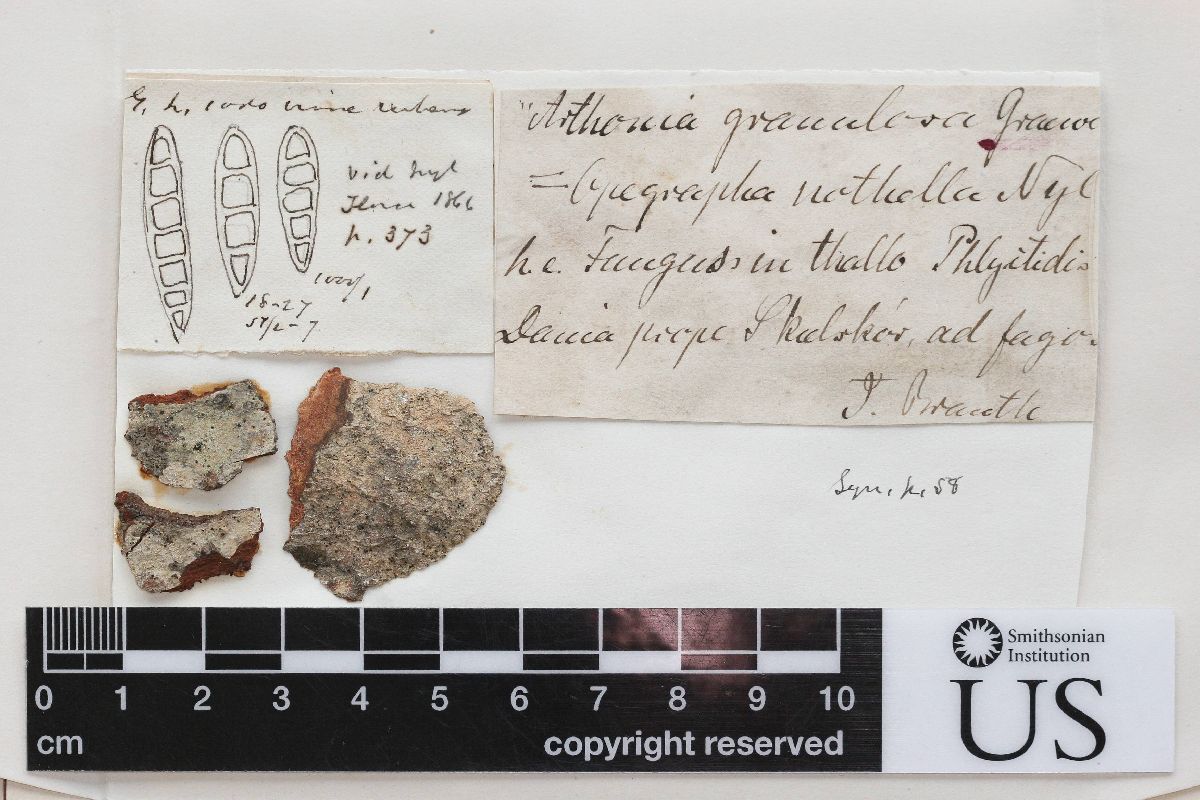 G. h. iodo vine rubens
vid Nyl
Flora 1866
p. 373
1000/1
18-27
5½-7
"Arthonia granulosa Graewe
= Opegrapha nothella Nyl
h. e. Fungus in thallo Phlyctidis
Dania prope Skelskör, ad fago
T. Branth
Syn. p. 58
0 1 2 3 4 5 6 7 8 9 10
cm copyright reserved
Smithsonian
Institution
US